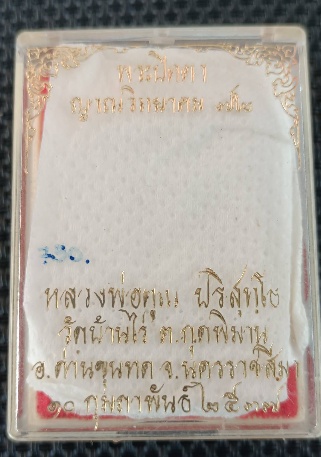 พระปิดตา
ญาณวิทยาคม
หลวงพ่อคูณ ปริสุทฺโธ
วัดบ้านไร่ ต.กุดพิมาน
อ.ด่านขุนทด จ.นครราชสีมา
๑๐ กุมภาพันธ์ ๒๕๓๗